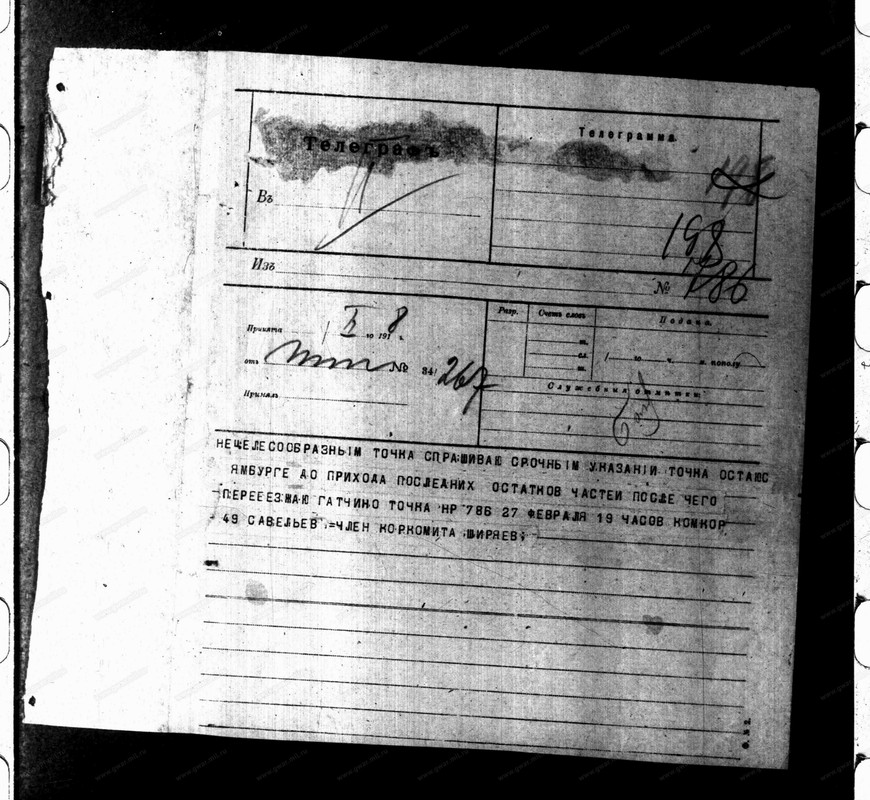 Телеграфъ
Телеграмма
198
Въ
198
Изъ
№ 786
Принята / II го 1918 г.
Разр.
Счетъ словъ
Подана.
отъ № 84/267
го ч. м. пополу
Принялъ
Служебныя отмѣтки:
НЕЦЕЛЕСООБРАЗНЫМ ТОЧКА СПРАШИВАЮ СРОЧНЫМ УКАЗАНИЙ ТОЧКА ОСТАЮС
ЯМБУРГЕ ДО ПРИХОДА ПОСЛЕДНИХ ОСТАТКОВ ЧАСТЕЙ ПОСЛЕ ЧЕГО
ПЕРЕЕЗЖАЮ ГАТЧИНО ТОЧКА НР 786 27 ФЕВРАЛЯ 19 ЧАСОВ КОМКОР
49 САВЕЛЬЕВ =ЧЛЕН КОРКОМИТА ШИРЯЕВ